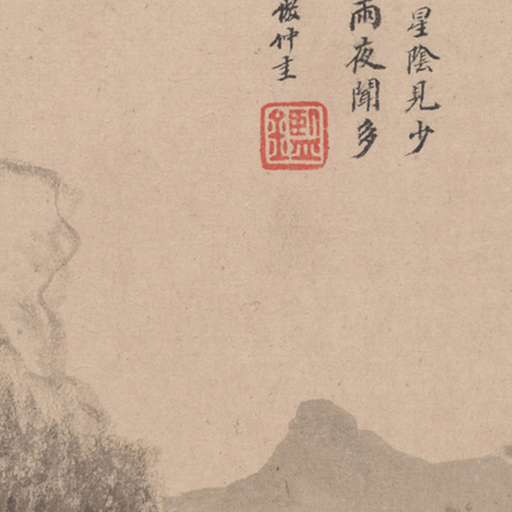 星陰見少
雨夜聞多
倣仲圭
鑑